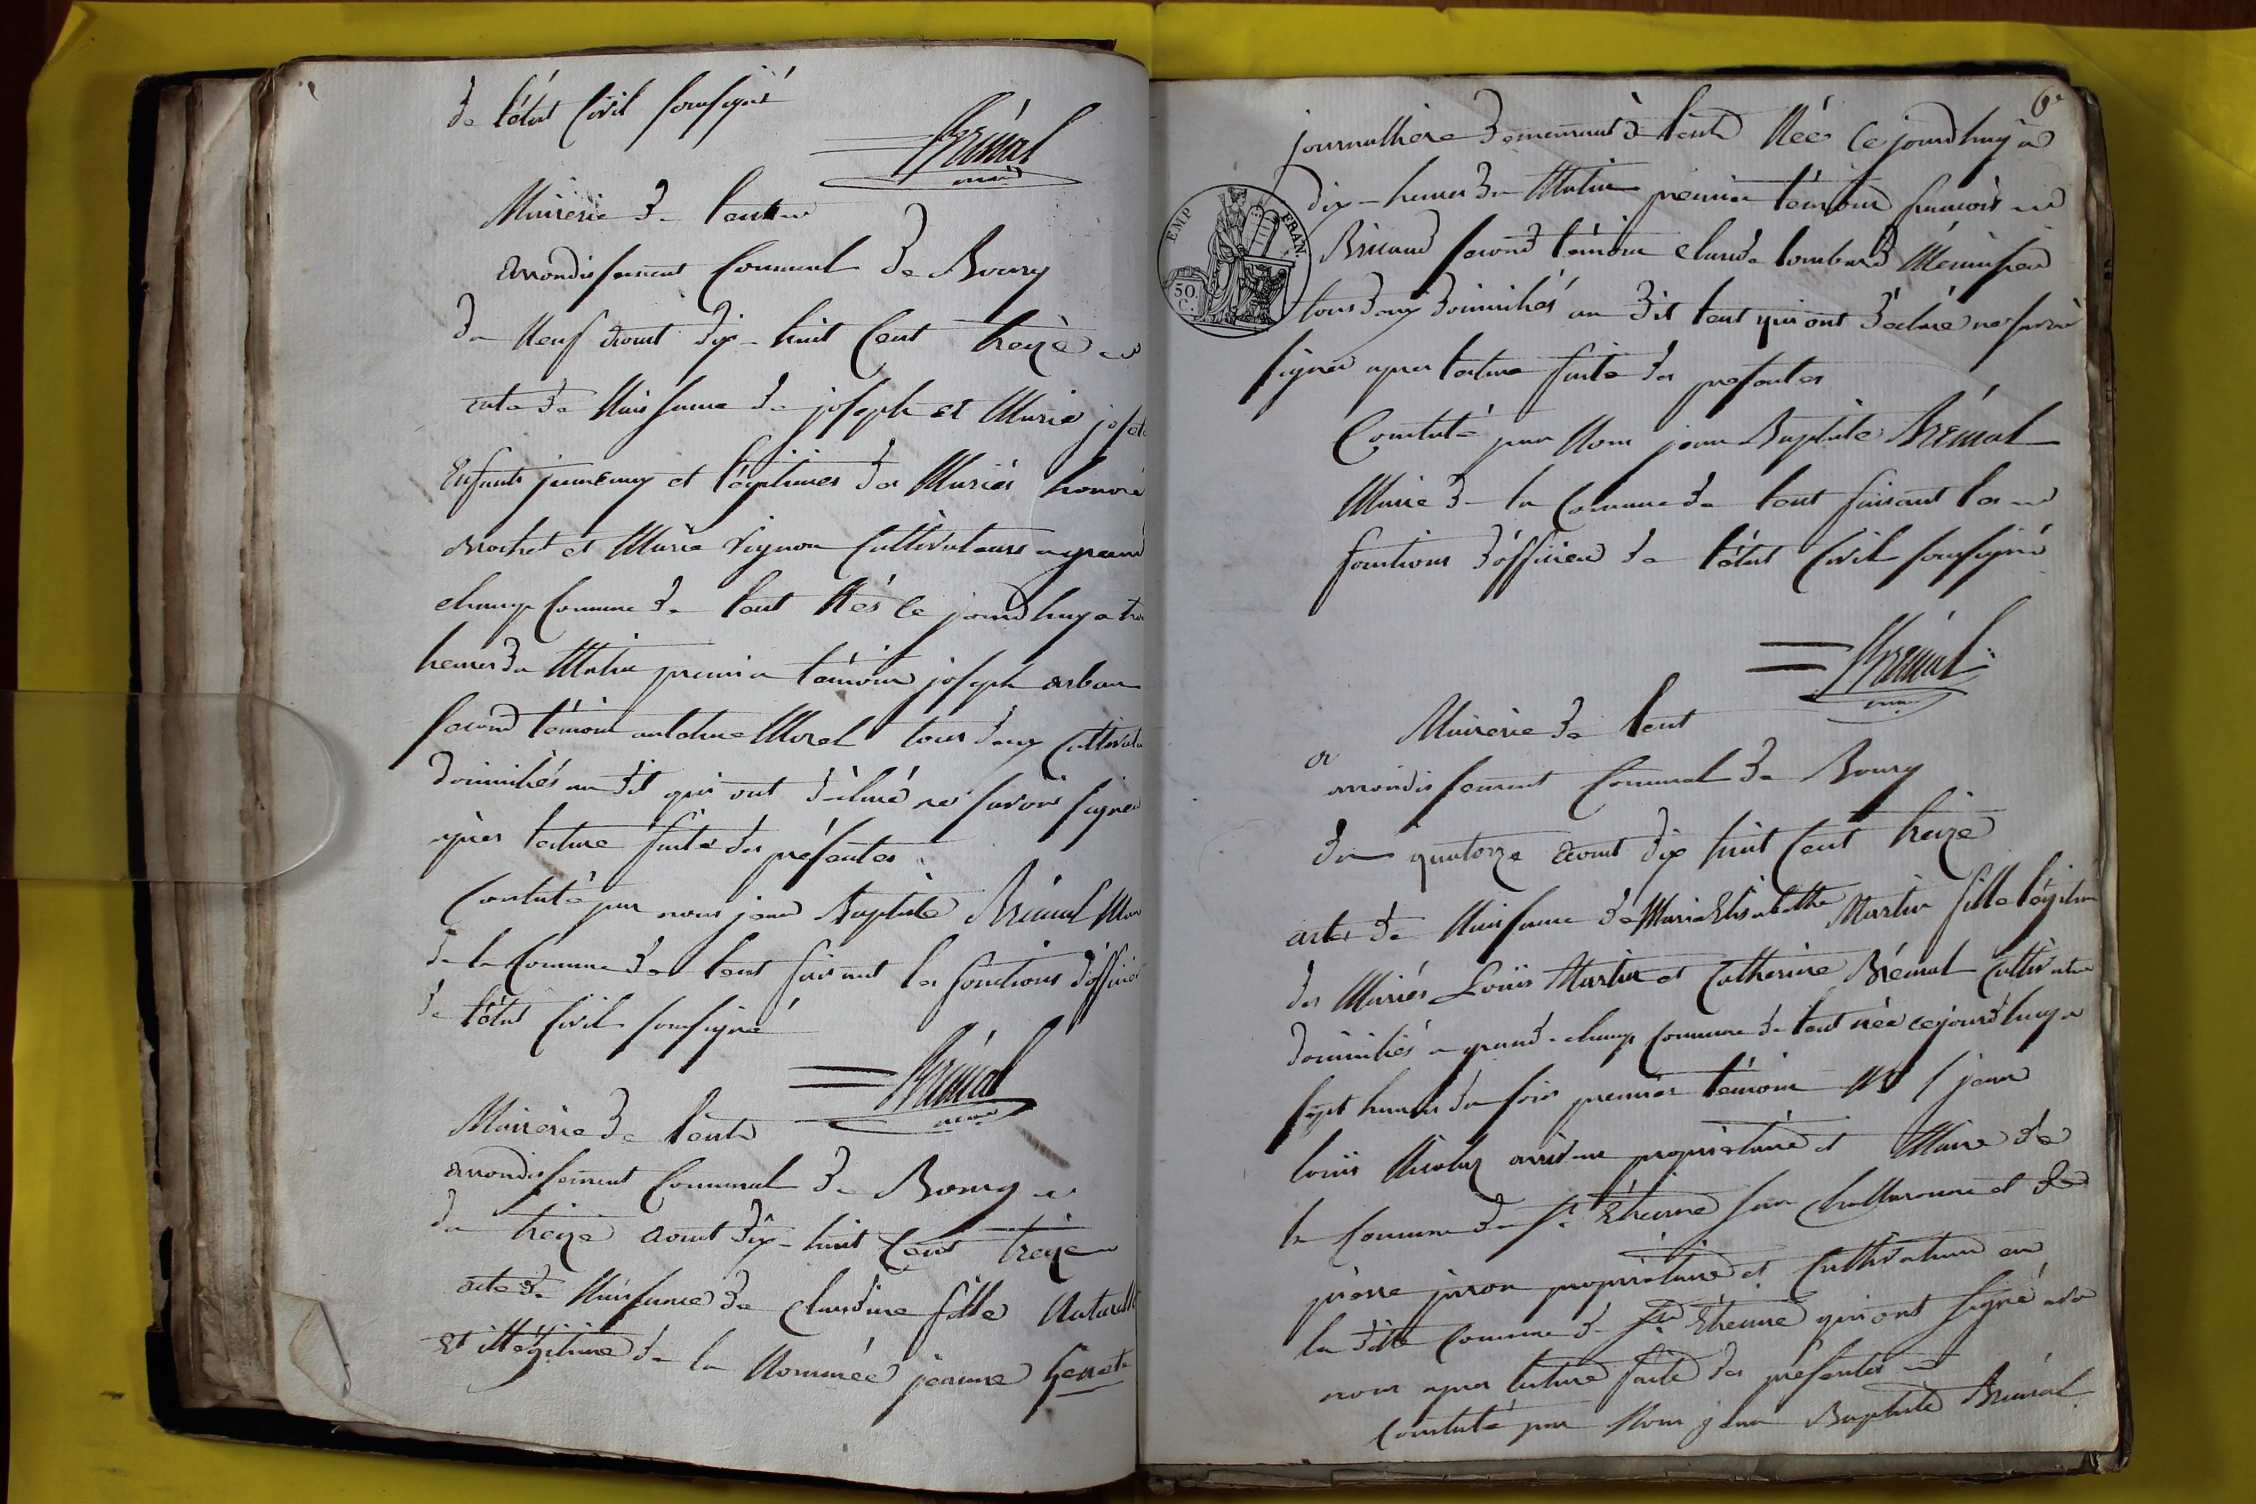 de l'état Civil soussigné
Brémal
maire
Mairerie de Lent
arrondissement Communal de Bourg
du neuf aout dix-huit Cent treize
acte de Naissance de joseph et Marie josete
Enfants jumeaux et légitimes des Mariés honoré
Brochet et Marie vignon Cultivateurs a grand
champ Commune de Lent Nés Ce jourd'huy a
heures du Matin premier témoin joseph
second témoin antoine Morel tous deux Cultivateurs
domiciliés au dit qui ont déclaré ne savoir signer
après lecture faite des présentes
Constaté par nous jean Baptiste Brémal Maire
de la Commune de Lent faisant les fonctions d'officier
de l'état Civil soussigné
Brémal
maire
Mairerie de Lent
arrondissement Communal de Bourg
du treize aout dix-huit Cent treize
acte de Naissance de Claudine fille Naturelle
Et illégitime de la Nommée jeanne
6e
journalliere demeurant à Lent Née Ce jourd'huy a
dix-heures du Matin premier témoin francois
EMP FRAN.
50 C.
Bricaud second témoin Claude Lombard Menuisier
tous deux domiciliés au dit Lent qui ont déclaré ne savoir
signer apres lecture faite des presentes
Constaté par Nous jean Baptiste Brémal
Maire de la Commune de Lent faisant les
fonctions d'officier de l'état Civil soussigné
Brémal
maire
Mairerie de Lent
arrondissement Communal de Bourg
du quatorze aout dix huit Cent treize
acte de Naissance de Marie Elisabethe Martin fille légitime
des Mariés Louis Martin et Catherine Brémal Cultivateurs
domiciliés a grand-champ Commune de Lent née ce jourd'huy a
sept heures du soir premier témoin jean
Louis Nicolas propriétaire et Maire de
la Commune de St Etienne sur Challaronne et de
pierre propriétaire et Cultivateur en
la dite Commune de St Etienne qui ont signé avec
nous apres lecture faite des présentes
Constaté par Nous jean Baptiste Brémal